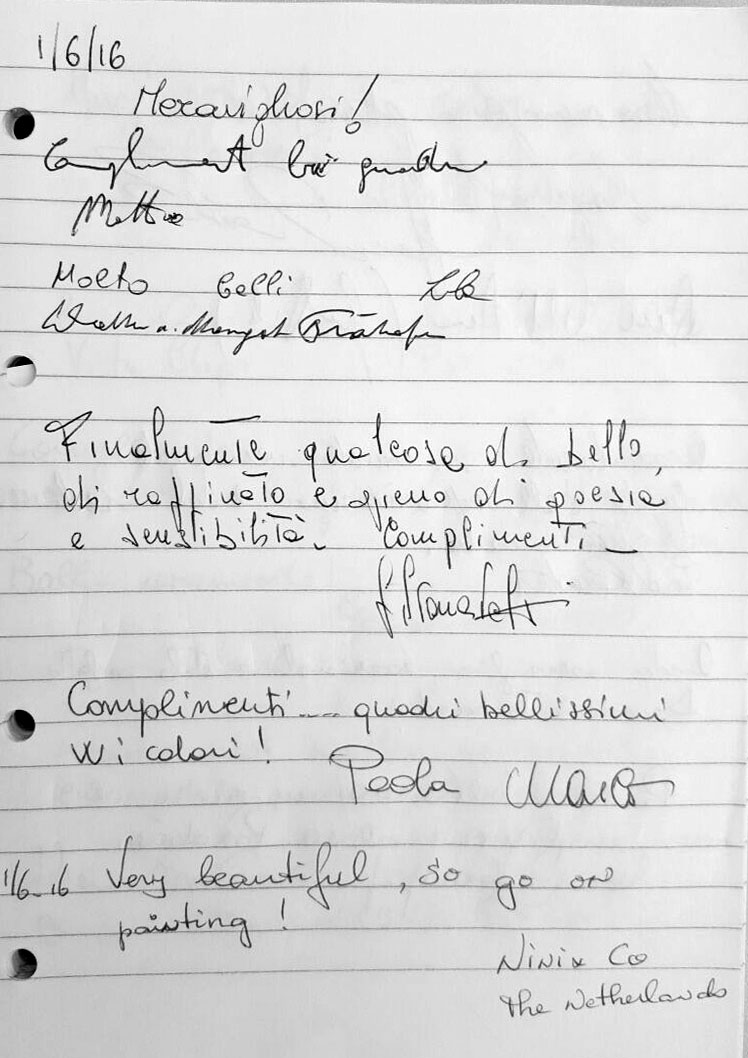 1/6/16
Meravigliosi!
Complimenti bei quadri
Molto belli
Finalmente qualcosa di bello,
di raffinato e pieno di poesia
e senstibilità. Complimenti.
Complimenti... quadri bellissimi
W i colori!
Paola
1/6-16 Very beautiful, so go on
painting!
The Netherlands